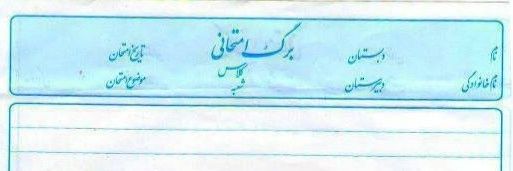 نام دبستان برگ امتحانی تاریخ امتحان
نام خانوادگی دبیرستان کلاس شعبه موضوع امتحان